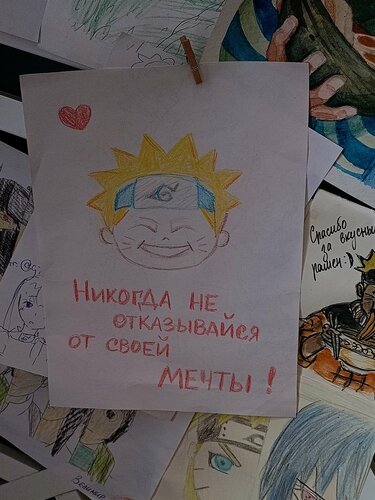 Никогда не
отказывайся
от своей
мечты!
Спасибо
за вкусный
рамен:)